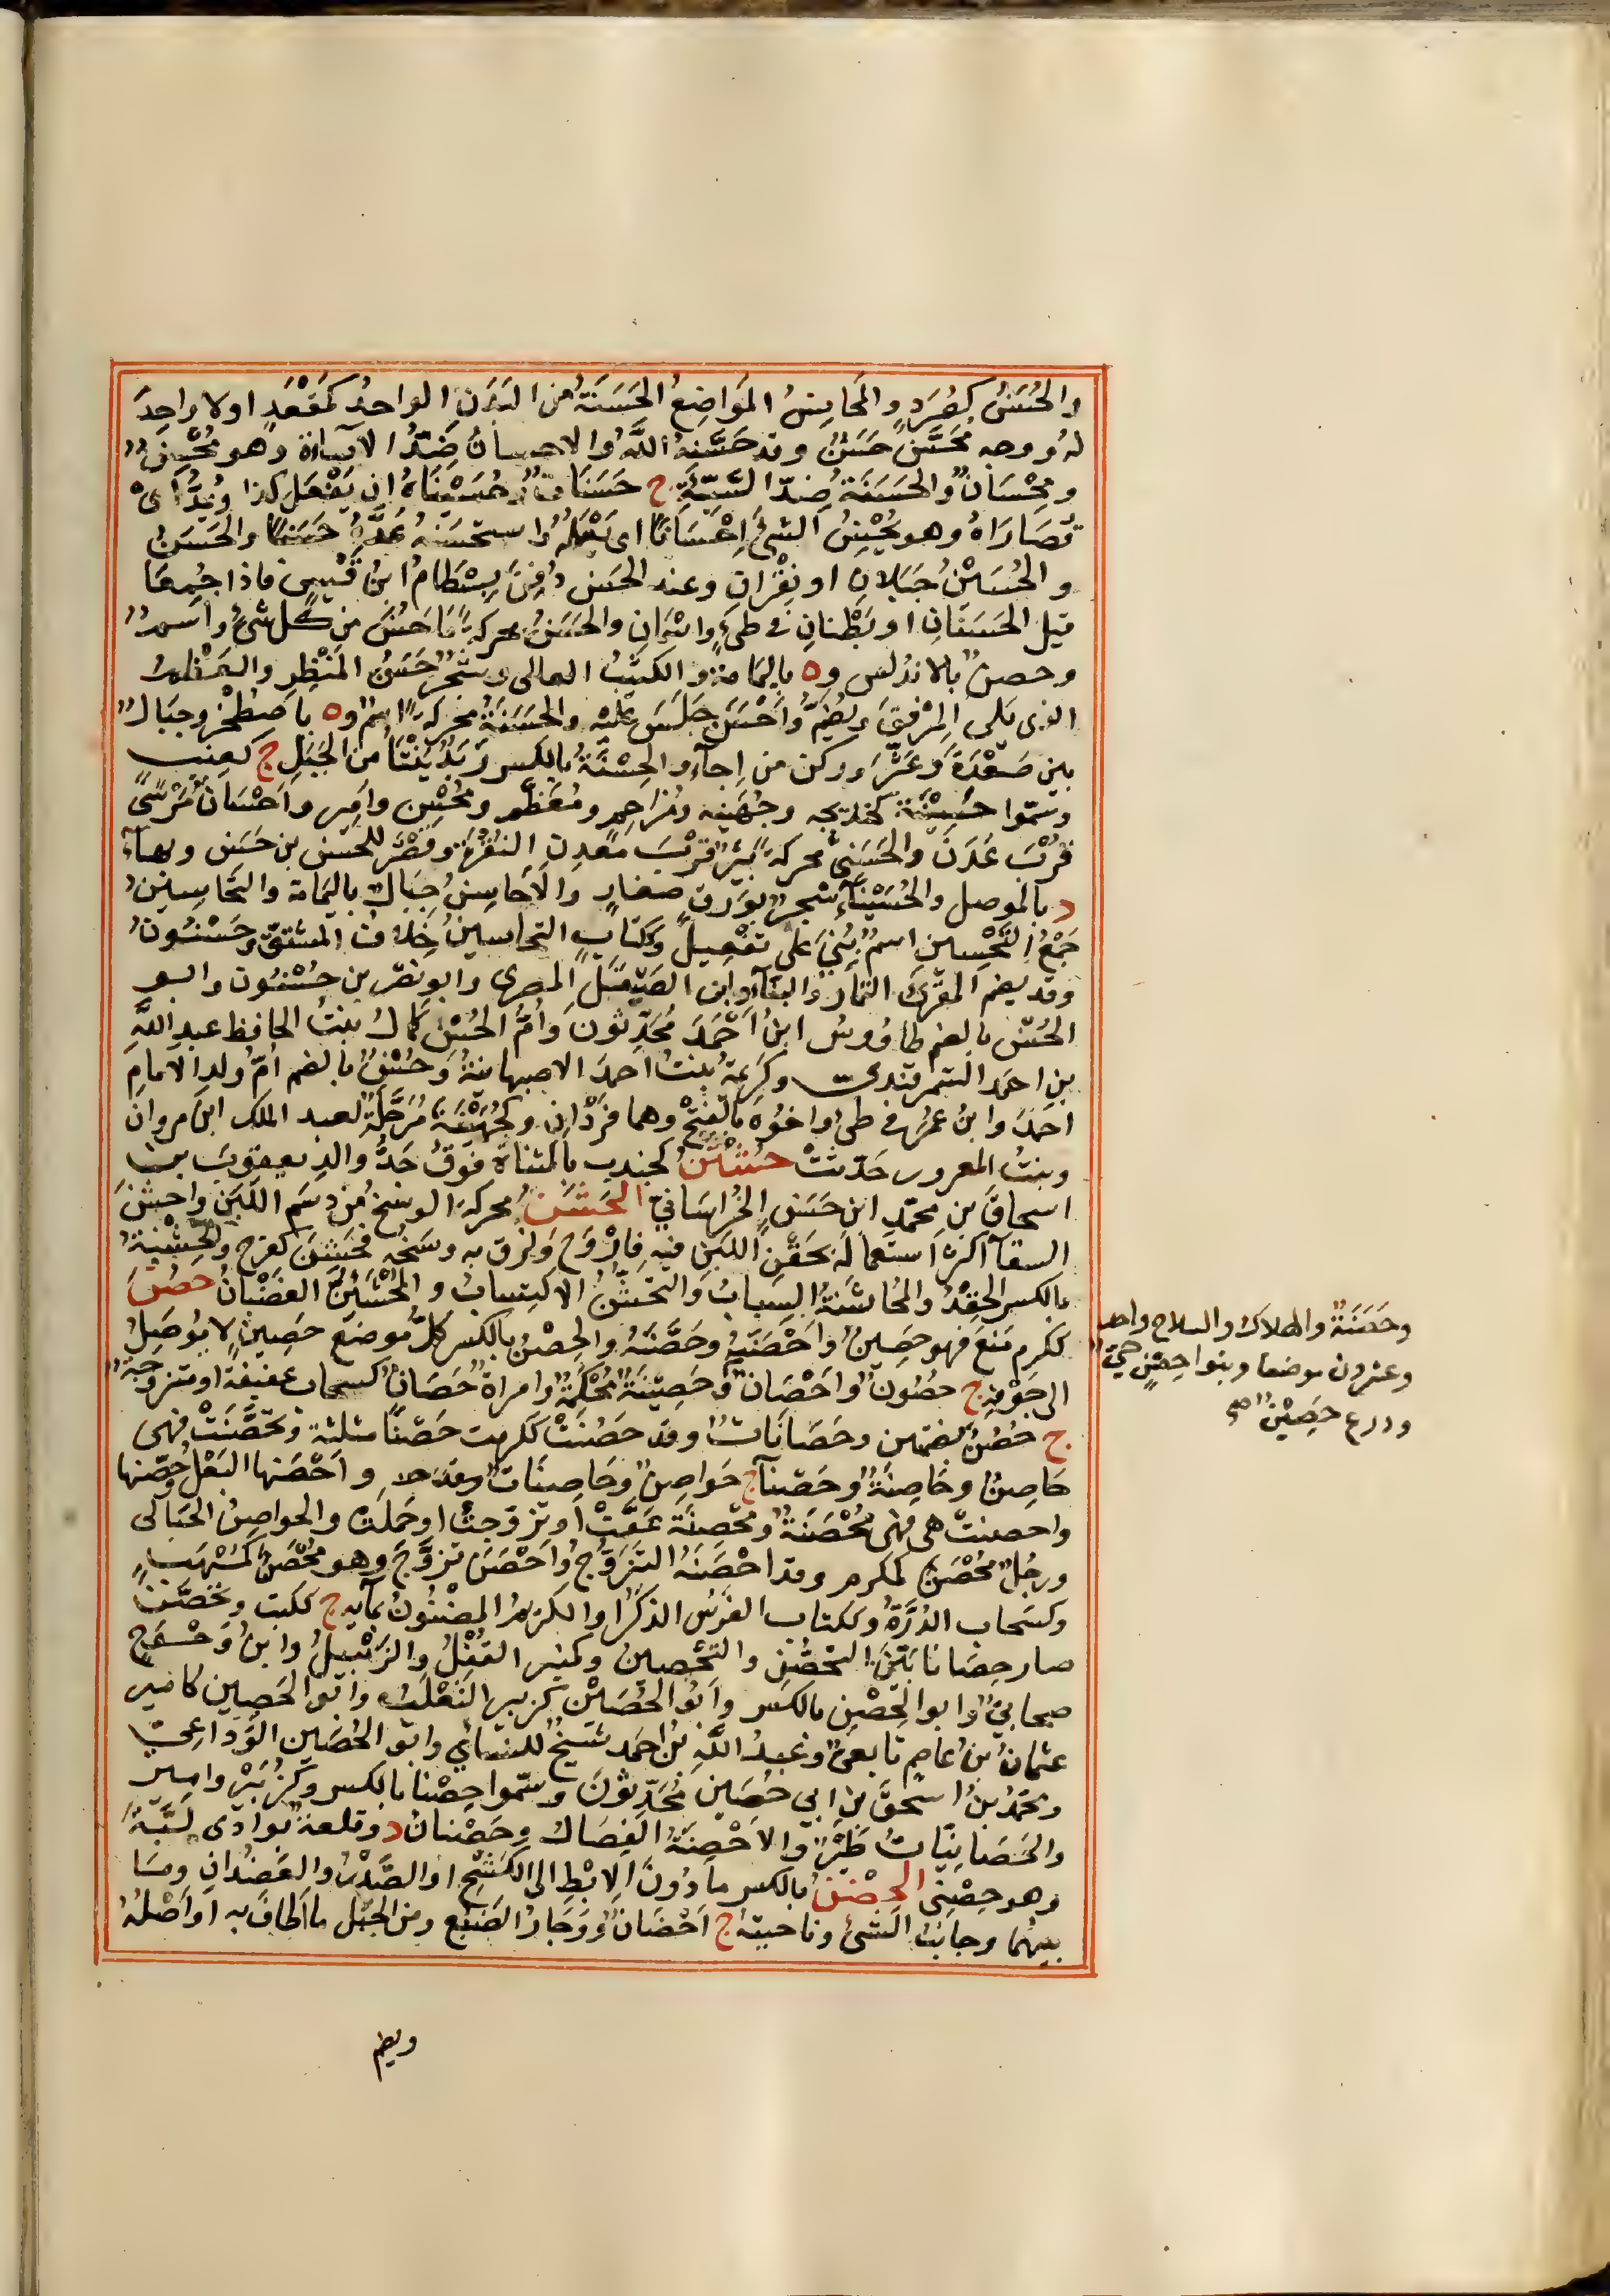 والحُسَنُ كصُرَدٍ والمَحَاسِنُ المَوَاضِعُ الحَسَنَةُ من البَدَنِ الواحدُ كمَقْعَدٍ او لا واحِدَ
له ووجه مُحَسَّن حَسَنٌ وقد حَسَّنهُ اللّٰهُ والاحسانُ ضِدُّ الاساءة وهو مُحْسِنٌ
ومِحْسَانٌ والحَسَنَةُ ضِدّ السَّيِّئَةِ ج حَسَنَاتٌ وحُسَيْنَاهُ ان يَفْعَلَ كذا ويُمَدُّ اى
قُصَارَاهُ وهو يُحْسِنُ الشئَ اِحْسَانًا اى يَعْلَمُهُ واستحسَنهُ عَدَّهُ حَسَنًا والحَسَنُ
والحُسَيْنُ جَبَلَانِ او نَقْوَانِ وعند الحَسَن دُفِنَ بِسْطَامُ ابنُ قَيْسٍ فاذا جُمِعَا
قيل الحَسَنَانِ او بَطْنَانِ فى طىءٍ واسْمَانِ والحَسَنُ محركةً مَا حَسُنَ من كُل شئٍ واسمٌ
وحصنٌ بالاندلس وه باليمَامة والكثيبُ العالى وشَجَرٌ حَسَنُ المَنْظَرِ والعَظمُ
الذى يَلى المِرْفَقَ ويُضَمُّ واَحْسَنَ جَلَسَ عليْه والحَسَنَةُ محركةً اسمٌ وه باصْطَخْرَ وجِبَالٌ
بين صَعْدَةَ وعَثَّرَ وركن من اجآءٍ والحِسْنَةُ بالكسر رَيْدٌ يَنْتَأُ من الجَبَلِ ج كعِنَب
وسَمّوا حَسِينَةَ كخديجه وجُهَينه ومُزاحِم ومُعَظَّم ومُحْسِن وامِير واَحْسَانُ مَرْسًى
قُرْبَ عَدَنَ والحَسَنِىُّ محركةً بِئْرٌ قُرْبَ مَعْدِنِ النُقْرَةِ وقَصْرٌ للحَسَن بن حَسَن وبهآءٍ
د بالموصل والحُسَيْنَآءُ شجرٌ بوَرَقٍ صغارٍ والاَحَاسِنُ جِبَالٌ باليَمَامَة والتحَاسينُ
جَمْعُ التَّحْسِين اسم بُنِىَ على تَفْعِيل وكتابِ التحاسينُ خِلافُ المَشْقِ وحَسْنُونُ
وقد يضم المقرئ التَمَارُ والبَنَّآءُ وابن الصَّيْقَلِ المصرى وابو نَصْرِ بن حُسْنُون وابو
الحُسْن بالضم طاوُوسُ ابنُ اَحْمَدَ مُحَدِّثُون واُمُّ الحُسْن كَمالُ بنتُ الحافظ عبدِ اللّٰهِ
بنِ احمَد السَّمَرْقندى وكَرِيمَةُ بنتُ احمدَ الاصبهانيةُ وحُسْنُ بالضم اُمّ ولدِ الامامِ
احمَدَ وابنُ عمرٍو فى طئ واخوُه بالفتحِ وهما فَرْدَانِ وكجُهَيْنَةَ مُرَجِّلَةٌ لعبد الملك ابن مروان
وبنتُ المعرور حَدّثتْ حُشْتُنُ كجندب بالمثناة فوقُ جَدُّ والدِ يعقوبَ بن
اسحاقَ بن محمّدٍ ابن حَسَن الخُراسَانى الحَشَنُ محركةً الوسَخُ من دسَمِ اللَبَن واحشَنَ
السقآ اكثرَ استعمالَه بحَقْنِ اللبَن فيهِ فاَرْوَحَ ولَزِقَ به وسَخُه فحَشِنَ كفرِحَ والحِشْنةُ
بالكسر الحِقْدُ والمُحَاشَنةُ السِبابُ والتَّحَشُّنُ الاكتِسابُ والمُحْشَئِنُّ الغَضْبَانُ حصُنَ
ككرم مَنعَ فهو حَصِينٌ واَحْصَنَهُ وحَصَّنَهُ والحِصْنُ بالكسر كلُّ موضِعٍ حَصِينٍ لا يُوصَلُ
الى جَوْفِهِ ج حُصُونٌ واَحْصَانٌ وحَصِينَةٌ مُحْكَمةٌ وامراةٌ حَصَانٌ كسحاب عفيفة او متزوجة
ج حُصُنٌ بضمتين وحَصَانَاتٌ وقد حَصُنَتْ ككرمت حصنًا مثلثة وتحصَّنَتْ فهى
حَاصِنٌ وحَاصِنَةٌ وحَصْنآ ج حَواصِنُ وحَاصِنَاتٌ واَحْصَنها البَعْلُ وحَصّنها
واحصنتْ هى فهى مُحْصَنَةٌ ومُحْصِنَة عَفَّتْ او تزوّجتْ او حَمَلَتْ والحواصِنُ الحَبَالى
ورجُلٌ مُحْصَنٌ كمكرم وقد احْصَنَهُ التَّزَوُّجُ واَحْصَنَ تزوَّجَ وهو مُحْصَنٌ كمُسْهَبٍ
وكسَحاب الدُرَّةُ وككتاب الفَرَسُ الذَكَرُ او الكَريمُ المضْنُونُ بمآئِه ج ككتب وتحَصَّنَ
صار حِصَانًا بَيِّنَ التحَصُّنِ والتَّحْصينِ وكمِنبر القُفْلُ والزَّنْبِيلُ وابنُ وَحْوَحٍ
صحابىٌّ وابو الحِصْنِ بالكسر وابُو الحُصَيْن كزبير الثَعْلَبُ وابو الحَصِين كامير
عثمانُ بنُ عاصِم تابعىٌّ وعبدُ اللّٰهِ بنُ احمَد شيخٌ للنسائي وابو الحُصَين الوَدَاعِىُّ
ومحمدُ بنُ اسْحقَ بن ابى حُصَين مُحَدِّثُونَ وسَمّوا حِصْنا بالكسر وكزُبَيْرٍ واميرٍ
والحَصَانِيّاتُ طَيْرٌ والاَحْصِنَةُ النِصَالُ وحِصْنانُ د وقلعةٌ بوادى ليَّةَ
وهو حِصْنِىّ الحِضْنُ بالكسر ما دُونَ الاِبْطِ الى الكَشْحِ او الصَّدْرُ والعَضُدانِ ومَا
بينهُما وجانبُ الشئِ وناحيتهُ ج اَحْضَانٌ ووَجَارُ الضَبُع ومن الجَبَل ما اَطافَ به او اَصْلُهُ
وحَصَنَةٌ والهلاك والسلاح واحد
وعشرون موضعا وبنوا حِصْنٍ حىٌّ
ودرع حَصِيْنٌ صح
ويضم